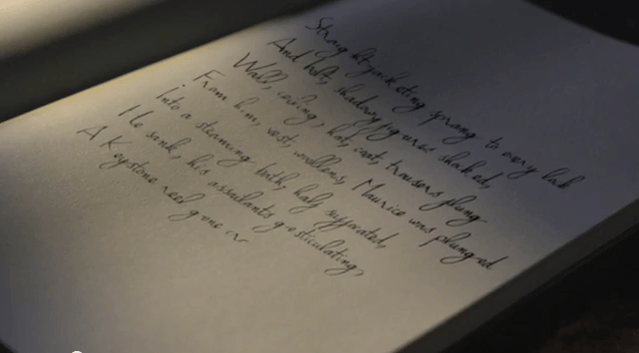 Straightjacketing sprang to every lock
And bolt, shadowy figures shocked,
Wall, ceiling, hat, coat, trousers flung
From him, vest, woollens, Maurice was plunged
Into a steaming bath; half suffocated,
He sank, his assailants gesticulating,
A Keystone reel gone